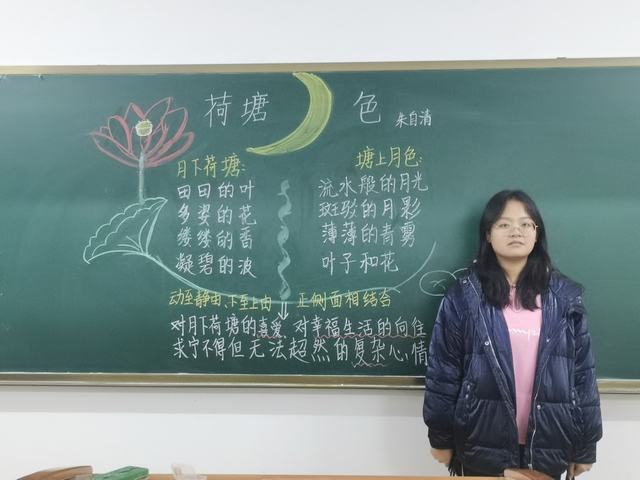 荷塘 色 朱自清
月下荷塘:
田田的叶
多姿的花
缕缕的香
凝碧的波
塘上月色:
流水般的月光
斑驳的月影
薄薄的青雾
叶子和花
动至静由,下至上由 正侧面相结合
对月下荷塘的喜爱 对幸福生活的向往
求宁不得但无法超然的复杂心情